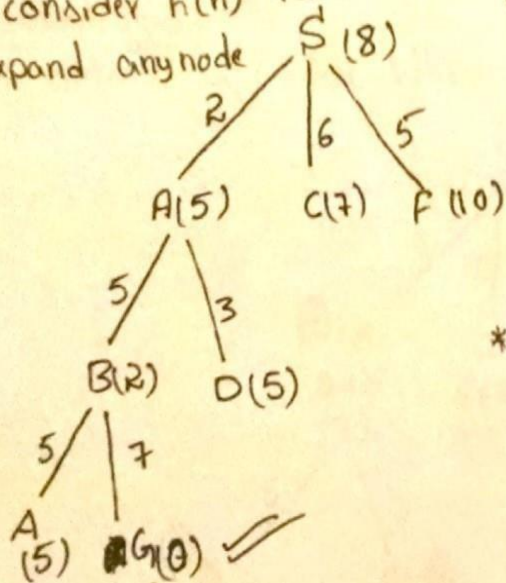 consider h(n)
expand any node
S (8)
2 6 5
A(5) C(7) F (10)
5 3
*
B(2) D(5)
5 7
A G(0)
(5)